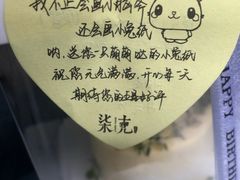 我不止会画小猫个
还会画小兔纸
呐，送你一只萌萌哒的小兔纸
祝你元气满满，开心每一天
期待您的5星好评
柒|克
HAPPY BIRTHD